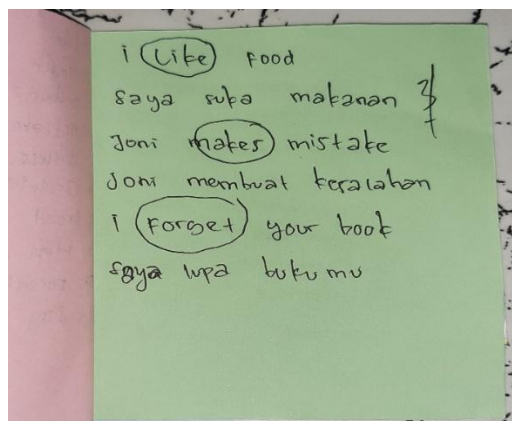 i like food
saya suka makanan
Joni makes mistake
Joni membuat kesalahan
i Forget your book
saya lupa bukumu